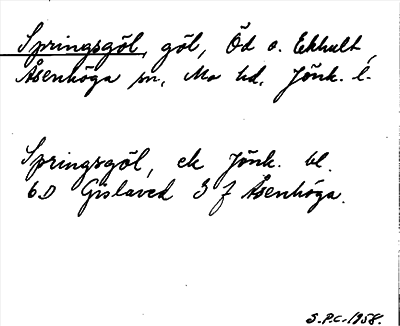 Springsgöl, göl, Öd o. Ekhult,
Åsenhöga sn, Mo hd, Jönk. l.
Springsgöl, ek Jönk. bl.
6D Gislaved S f Åsenhöga.
S.P.C. 1958.